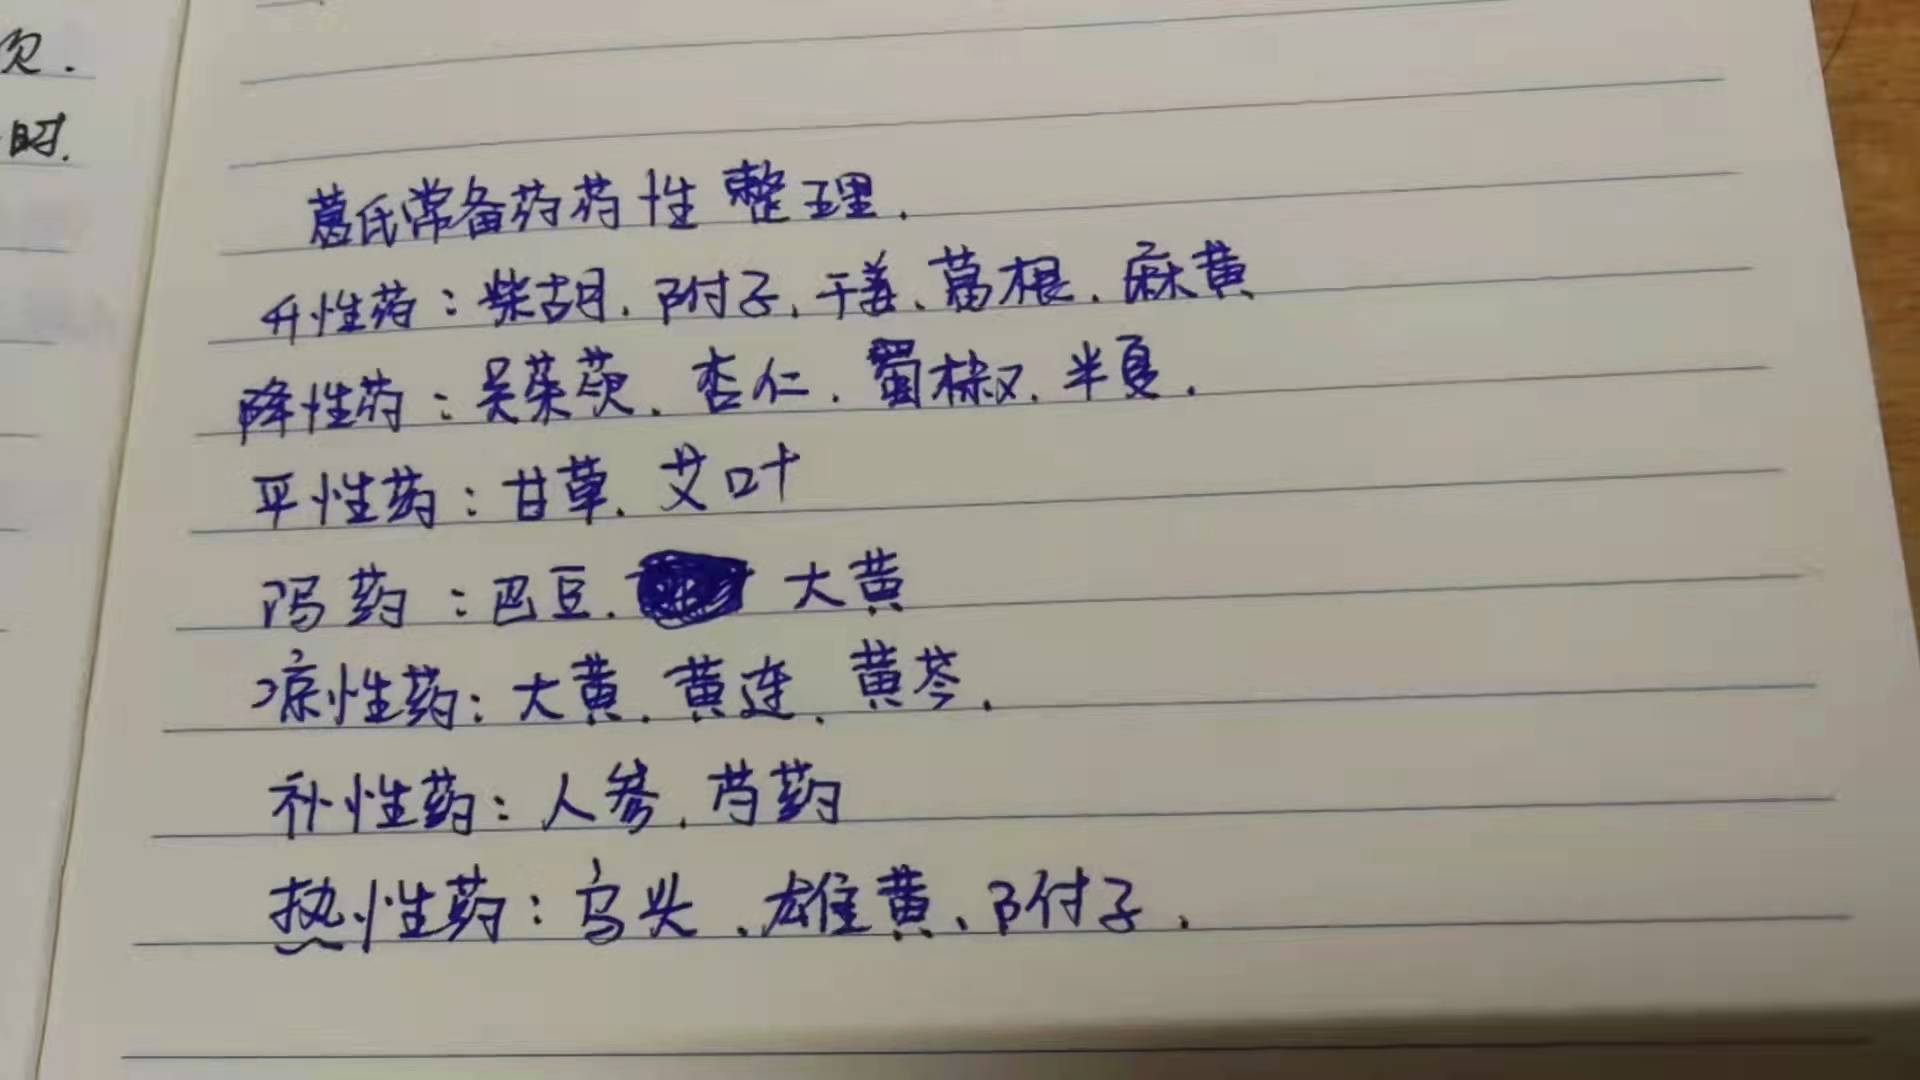 欠.
时.
葛氏常备药药性整理.
升性药：柴胡.附子.干姜.葛根.麻黄
降性药：吴茱萸.杏仁.蜀椒.半夏.
平性药：甘草.艾叶
泻药：巴豆. 大黄
凉性药：大黄.黄连.黄芩.
补性药：人参.芍药
热性药：乌头.雄黄.附子.